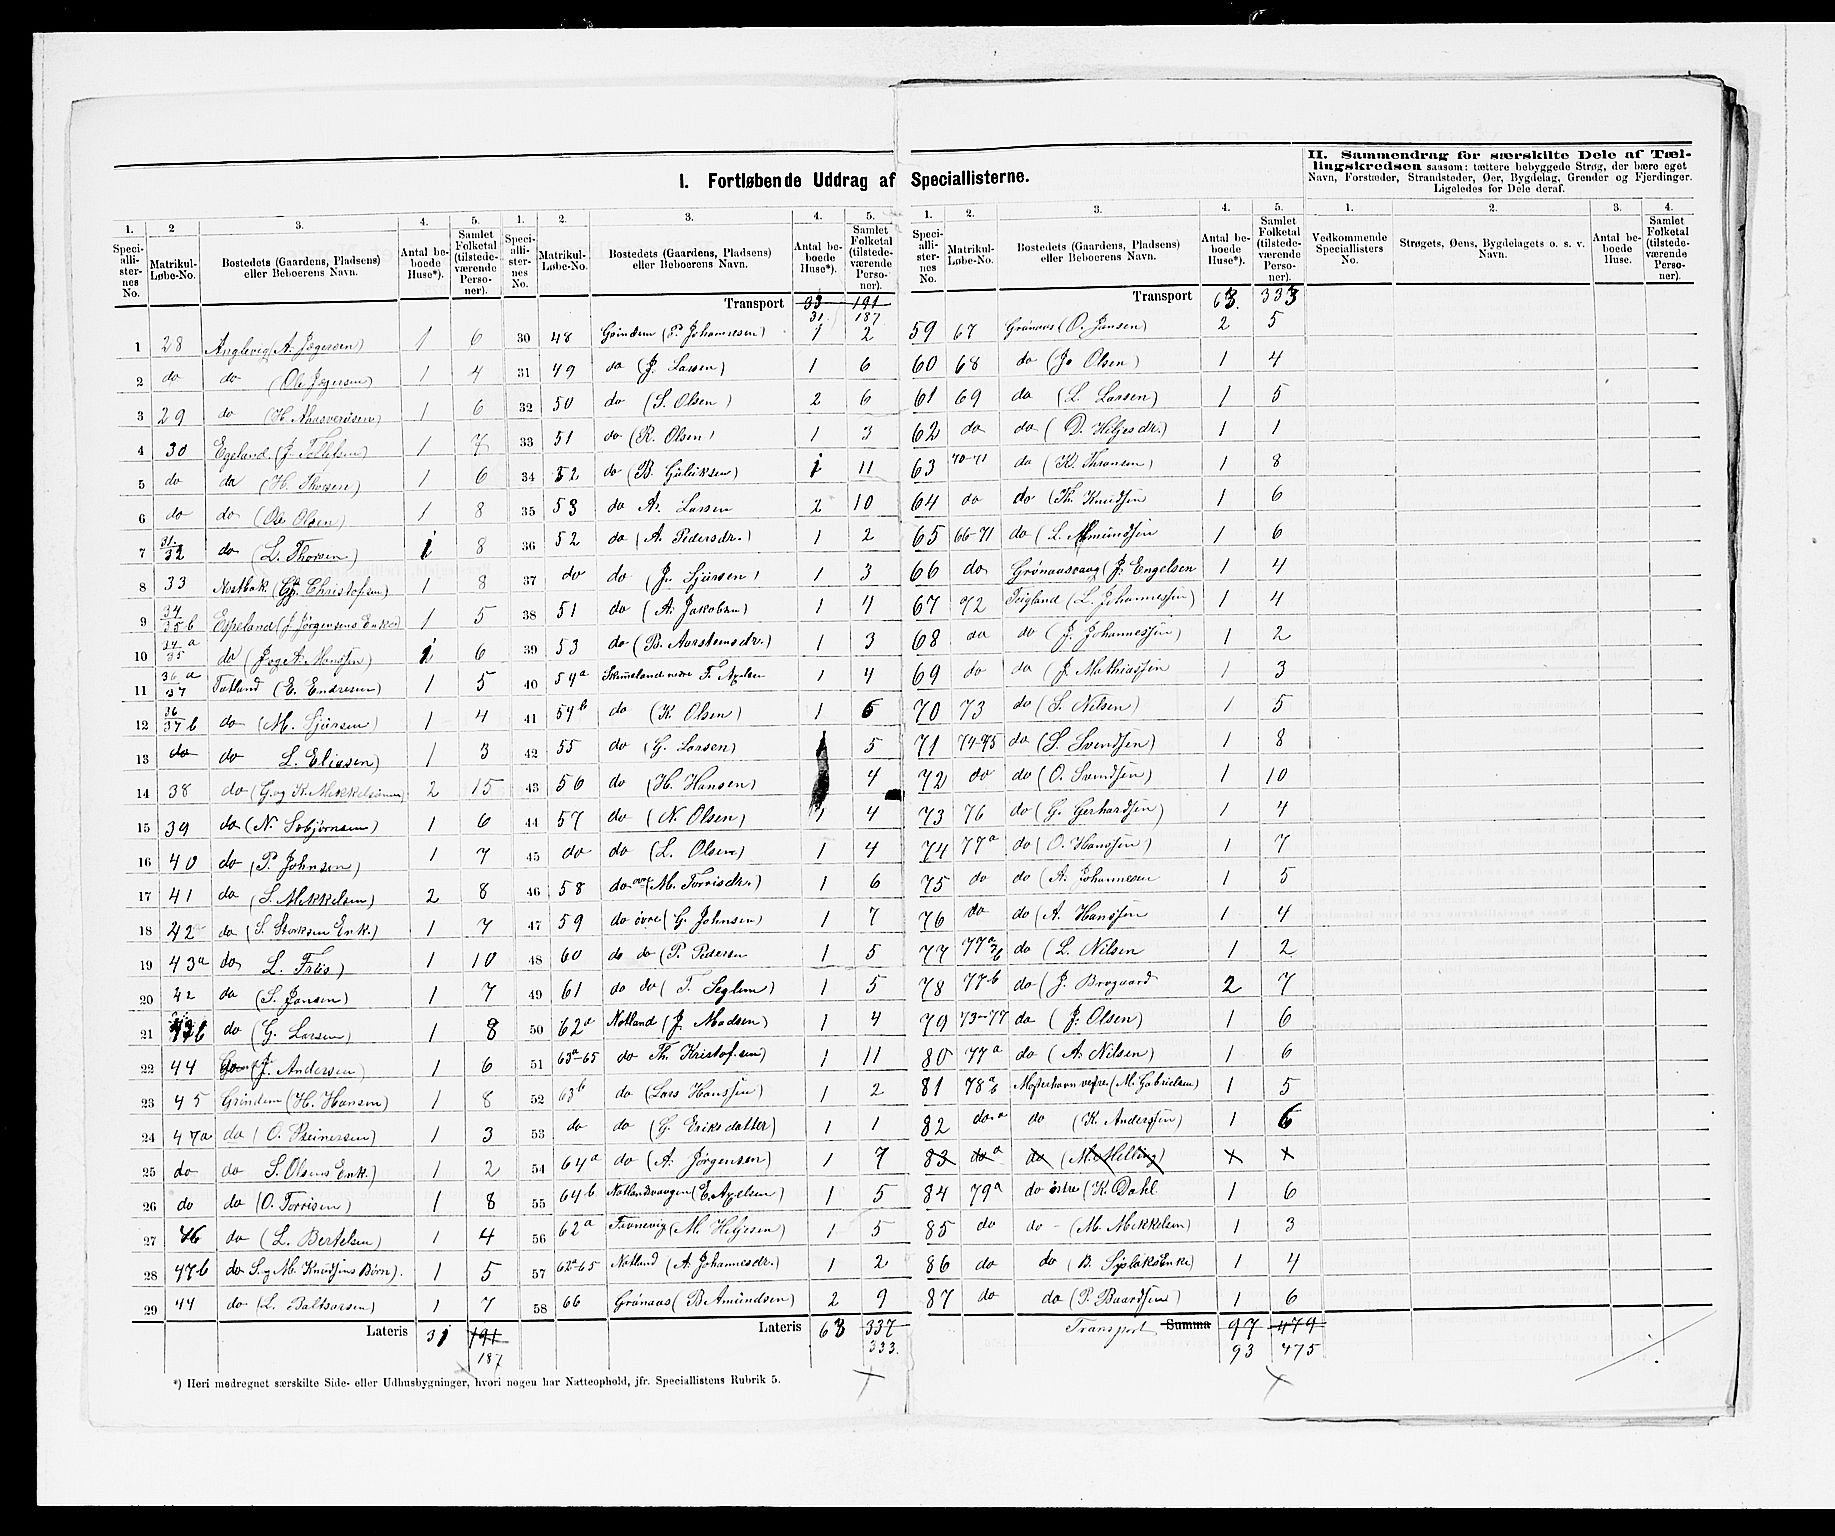 I. Fortløbende Uddrag af Speciallisterne.
II. Sammendrag for særskilte Dele af Tæl-
lingskredsen saasom: tættere bebyggede Strøg, der bære eget
Navn, Forstæder, Strandsteder, Øer, Bygdelag, Grender og Fjerdinger.
Ligeledes for Dele deraf.
1. 2 3. 4. 5. 1. 2. 3. 4. 5. 1. 2. 3. 4. 5. 1. 2. 3. 4.
Speciallisternes No. Matrikul-Løbe-No. Bostedets (Gaardens, Pladsens) eller Beboerens Navn. Antal beboede Huse*). Samlet Folketal (tilstedeværende Personer).
Speciallisternes No. Matrikul-Løbe-No. Bostedets (Gaardens, Pladsens) eller Beboerens Navn. Antal beboede Huse*). Samlet Folketal (tilstedeværende Personer).
Speciallisternes No. Matrikul-Løbe-No. Bostedets (Gaardens, Pladsens) eller Beboerens Navn. Antal beboede Huse*). Samlet Folketal (tilstedeværende Personer).
Vedkommende Speciallisters No. Strøgets, Øens, Bygdelagets o. s. v. Navn. Antal beboede Huse. Samlet Folketal (tilstedeværende Personer).
1 28 Anglevig (A. Jægersen) 1 6
2 do do (Ole Jægersen) 1 4
3 29 do (H. Ahasverusen) 1 6
4 30 Egeland (J. Tollefsen) 1 7
5 do do (H. Thorsen) 1 6
6 do do (Ole Olsen) 1 8
7 31/32 do (L. Thorsen) 1 8
8 33 Nostbak (Christofsen) 1 8
9 34/35 b Espeland (J. Jørgensens Enke) 1 5
10 34/35 a do (J. og A. Monssen) 1 6
11 36/37 a Tøtland (E. Endresen) 1 5
12 36/37 b do (M. Sjursen) 1 4
13 do do L. Eliasen) 1 3
14 38 do (G. og K. Mikkelsønner) 2 15
15 39 do (N. Sobjørnsen) 1 6
16 40 do (P. Johnsen) 1 7
17 41 do (S. Mikkelsen) 2 8
18 42 do (S. Storksen Enk.) 1 7
19 43a do L. Friis) 1 10
20 42 do (S. Jansen) 1 7
21 do (G. Larsen) 1 8
22 44 (J. Andersen) 1 6
23 45 Grindem (H. Hansen) 1 8
24 47a do (O. Reinersen) 1 3
25 do do S. Olsens Enk.) 1 2
26 do do (O. Torrisen) 1 8
27 46 do (L. Bertelsen) 1 4
28 47b do S. og M. Knudsens Børn). 1 5
29 44 do (L. Baltsersen) 1 7
Lateris 31 191
187
Transport 33 191
31 187
30 48 Grindem (P. Johannesen) 1 2
31 49 do (J. Larsen) 1 6
32 50 do (S. Olsen) 2 6
33 51 do (R. Olsen) 1 3
34 52 do (B. Guliksen) 1 11
35 53 do A. Larsen 2 10
36 52 do (A. Pedersdr.) 1 2
37 do do (J. Sjursen) 1 3
38 51 do (A. Jakobsen) 1 4
39 53 do (B. Aarstensdr.) 1 3
40 54a Skimeland nedre F. Axelsen 1 4
41 54b do (K. Olsen) 1 6
42 55 do (G. Larsen) 1 5
43 56 do (H. Hansen) 4
44 57 do (N. Olsen) 1 4
45 do do (L. Olsen) 1 4
46 58 do øvr (M. Torrisdr.) 1 6
47 59 do øvre (G. Johnsen) 1 7
48 60 do do (P. Pedersen 1 5
49 61 do do (T. Seglem) 1 5
50 62a Notland (J. Madsen) 1 4
51 63a-65 do Th. Kristofsen) 1 11
52 63b do (Lars Hanssen) 1 2
53 do do (G. Eriksdatter) 1 1
54 64a do (A. Jørgensen) 1 7
55 64b Notlandsvaagen (E. Axelsen) 1 5
56 62a (M. Heljesen) 1 5
57 62a-65 Notland (A. Johannesdr.) 1 2
58 66 Grønaas (B. Amundsen) 2 9
Lateris 63 337
333.
Transport 63 333
59 67 Grønaas (O. Jansen) 2 5
60 68 do (Jo Olsen) 1 4
61 69 do (L. Larsen) 1 5
62 do do (D. Heljesdr.) 1 1
63 70-71 do (K. Thronsen) 1 8
64 do do (Th. Knudsen 1 6
65 66-71 do (L. Amundsen 1 6
66 do Grønaasvaag (J. Engelsen 1 4
67 72 Teigland (L. Johannessen) 1 4
68 do do (J. Johannessen) 1 2
69 do do (J. Mathiassen 1 3
70 73 do (S. Nilsen) 1 5
71 74-75 do (S. Svendsen) 1 8
72 do do (O. Svendsen) 1 10
73 76 do (G. Gerhardsen) 1 4
74 77a do (O. Hanssen) 1 7
75 do do (A. Johannesen 1 5
76 do do (A. Hanssen 1 4
77 77a/b do (L. Nilsen 1 2
78 77b do (J. Brogaard 2 7
79 73-77 do (J. Olsen) 1 6
80 77a do (A. Nilsen) 1 6
81 78a/b Mosterhavn vestre (M. Gabrielsen) 1 5
82 do a do (K. Anderssen) 1 6
83 do a do (M. Melling) x x
84 79a do østre (K. Dahl 1 6
85 do do - (M. Mikkelsen) 1 3
86 do do (B. Sjslaks Enke) 1 4
87 do do (P. Baardsen) 1 6
Transport Summa 97 479
93 475
*) Heri medregnet særskilte Side- eller Udhusbygninger, hvori nogen har Natteophold, jfr. Speciallistens Rubrik 5.